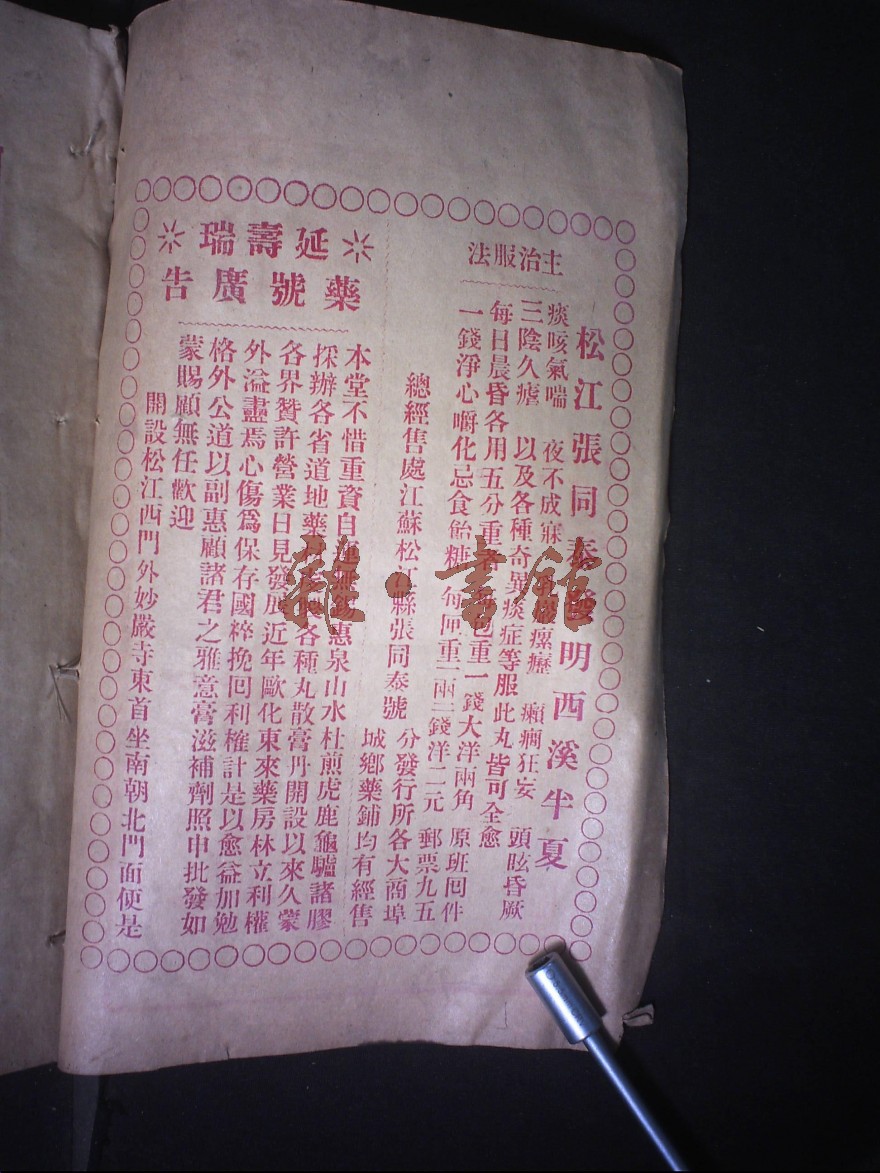 松江張同泰發明西溪半夏
主治服法
痰咳氣喘 夜不成寐 瘰癧 癲癇狂妄 頭眩昏厥
三陰久瘧 以及各種奇異痰症等服此丸皆可全愈
每日晨昏各用五分重者 包重一錢大洋兩角 原班囘件
一錢淨心嚼化忌食飴糖 每匣重二兩二錢洋二元 郵票九五
總經售處江蘇松江縣張同泰號
分發行所各大商埠
城鄉藥鋪均有經售
延壽瑞
藥號廣告
本堂不惜重資自 惠泉山水杜煎虎鹿龜驢諸膠
採辦各省道地藥 各種丸散膏丹開設以來久蒙
各界贊許營業日見發展近年歐化東來藥房林立利權
外溢盡焉心傷爲保存國粹挽囘利權計是以愈益加勉
格外公道以副惠顧諸君之雅意膏滋補劑照申批發如
蒙賜顧無任歡迎
開設松江西門外妙嚴寺東首坐南朝北門面便是
雜·書館